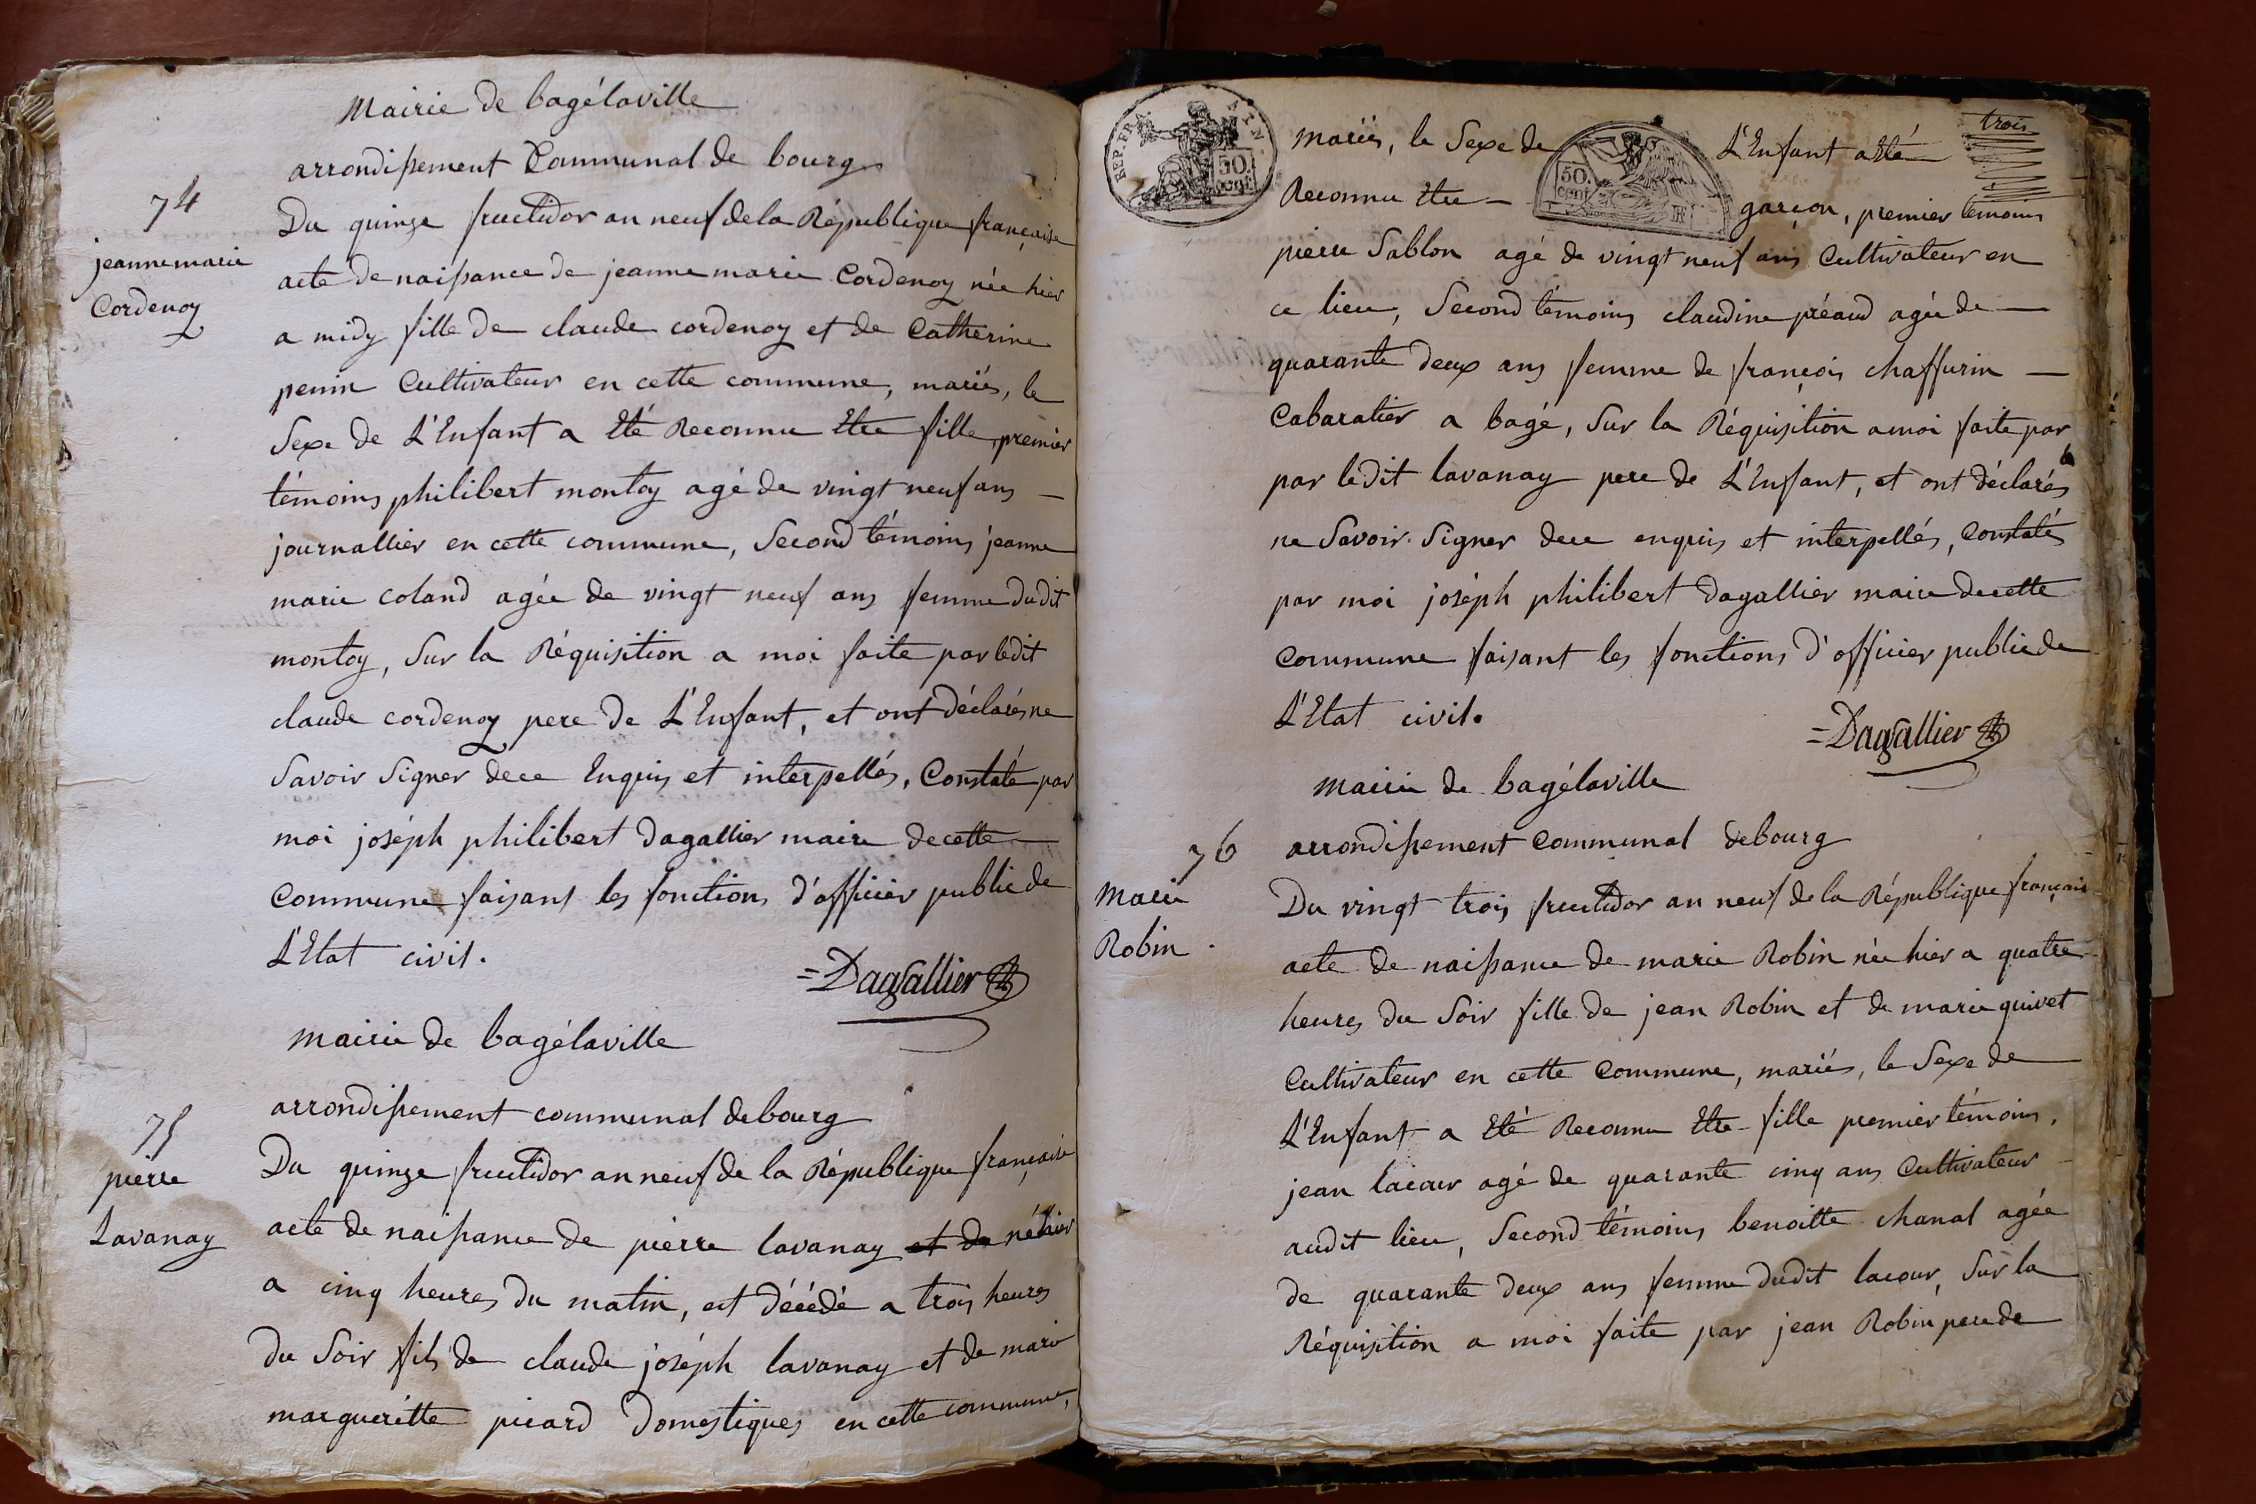 Mairie de bagélaville
arrondissement Communal de bourg
74
jeanne marie
Cordenoy
Du quinze fructidor an neuf de la République française
acte de naissance de jeanne marie Cordenoy née hier
a midy fille de claude cordenoy et de Catherine
penin Cultivateur en cette commune, mariés, le
Sexe de L'Enfant a Eté Reconnu Etre fille, premier
témoins philibert montoy agé de vingt neuf ans —
journallier en cette commune, Second témoins jeanne
marie coland agée de vingt neuf ans femme dudit
montoy, Sur la Réquisition a moi faite par ledit
claude cordenoy pere de L'Enfant, et ont déclarés ne
Savoir Signer de ce Enquis et interpellés, Constaté par
moi joséph philibert Dagallier maire de cette —
Commune faisant les fonction d'officier public de
L'Etat civil.
=Dagallier
Mairie de bagélaville
arrondissement communal de bourg
75
pierre
Lavanay
Du quinze fructidor an neuf de la République française
acte de naissance de pierre lavanay et de né hier
a cinq heures du matin, et décédé a trois heures
du Soir fils de claude joséph lavanay et de marie
margueritte picard Domestiques en cette commune,
REP. FRA. 50. cent.
trois
Mariés, le Sexe de L'Enfant a Eté
50. cent.
Reconnu Etre — garçon, premier temoins
pierre Sablon agé de vingt neuf ans Cultivateur en
ce lieu, Second témoins claudine préaud agée de —
quarante deux ans femme de françois chaffurin —
Cabaratier a bagé, Sur la Réquisition a moi faite par
par ledit lavanay pere de L'Enfant, et ont déclarés
ne Savoir Signer de ce enquis et interpellés, Constatés
par moi joséph philibert Dagallier maire de cette
Commune faisant les fonctions d'officier public de
L'Etat civil.
=Dagallier
Mairie de bagélaville
arrondissement Communal de bourg
76
Marie
Robin
Du vingt trois fructidor an neuf de la République français
acte de naissance de marie Robin née hier a quatre
heures du Soir fille de jean Robin et de marie guivet
Cultivateur en cette Commune, mariés, le Sexe de
L'Enfant a Eté Reconnu Etre fille premier témoins,
jean lacour agé de quarante cinq ans Cultivateur
audit lieu, Second témoins benoitte chanal agée
de quarante deux ans femme dudit lacour, Sur la
Réquisition a moi faite par jean Robin pere de